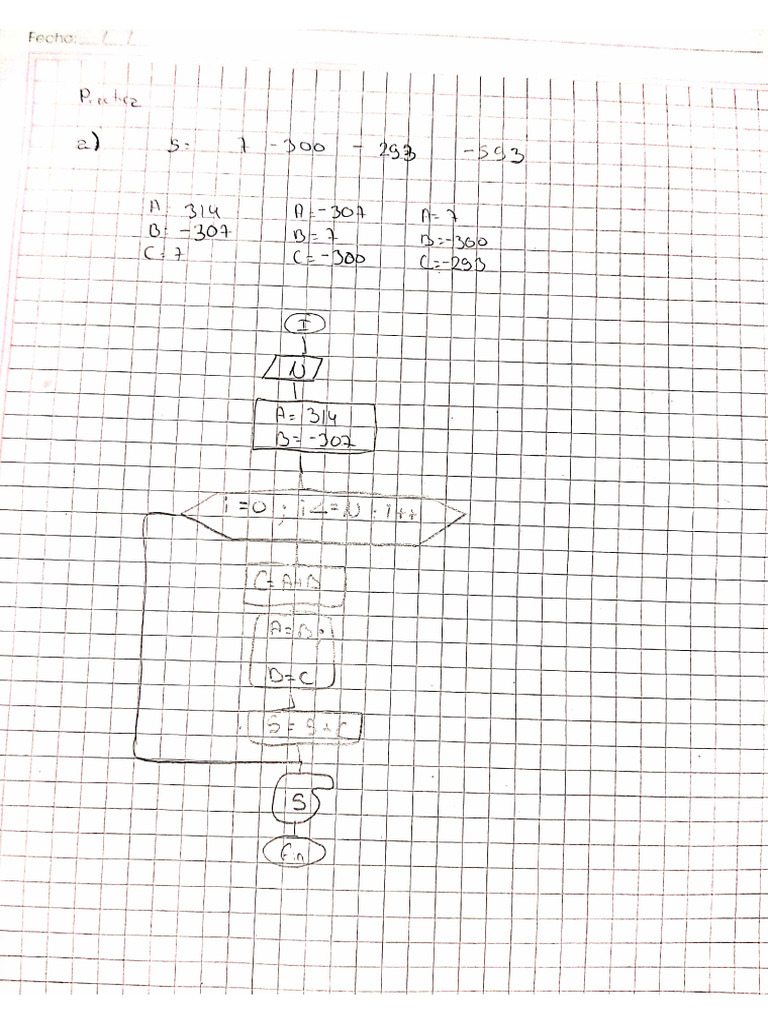 Fecha:
Practica
a) S= 7 -300 - 293 -593
A= 314 A=-307 A=7
B= -307 B=7 B=-300
C=7 C=-300 C=-293
I
N
A= 314
B= -307
i=0 ; i<=N ; i++
C=A+B
A=B;
B=C
S=S+C
S
Fin